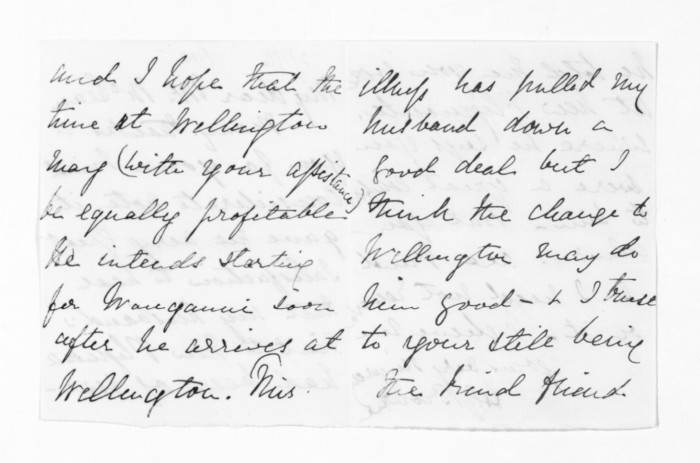 and I hope that the
time at Wellington
may (with your assistance)
be equally profitable.
He intends starting
for Wanganui soon
after he arrives at
Wellington. This
illness has pulled my
husband down a
good deal but I
think the change to
Wellington may do
him good - & I trust
to your still being
the kind friend